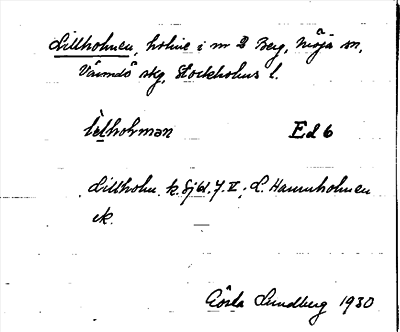 Lillholmen, holme i nr 2 Berg, Möja sn,
Värmdö skg, Stockholms l.
lilholman Ed 6
Lillholm. k. Sjkl. J. V; L. Hamnholmen
ek.
Gösta Lundberg 1930